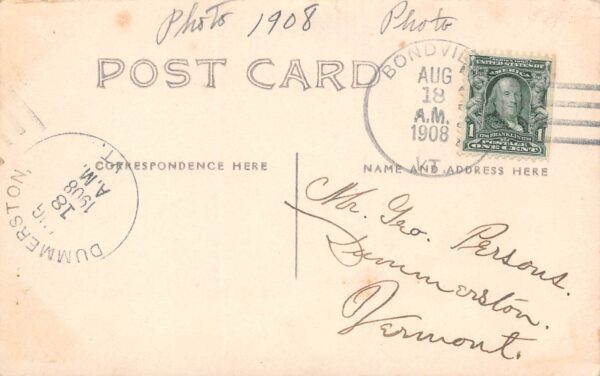 Photo 1908 Photo
POST CARD
BONDVIL
AUG
18
A.M.
1908
VT.
UNITED STATES OF
AMERICA
1 FRANKLIN 1
POSTAGE
ONE CENT
CORRESPONDENCE HERE
NAME AND ADDRESS HERE
DUMMERSTON, VT.
AUG
18
A.M.
1908
Mr. Geo. Persons.
Dummerston.
Vermont.